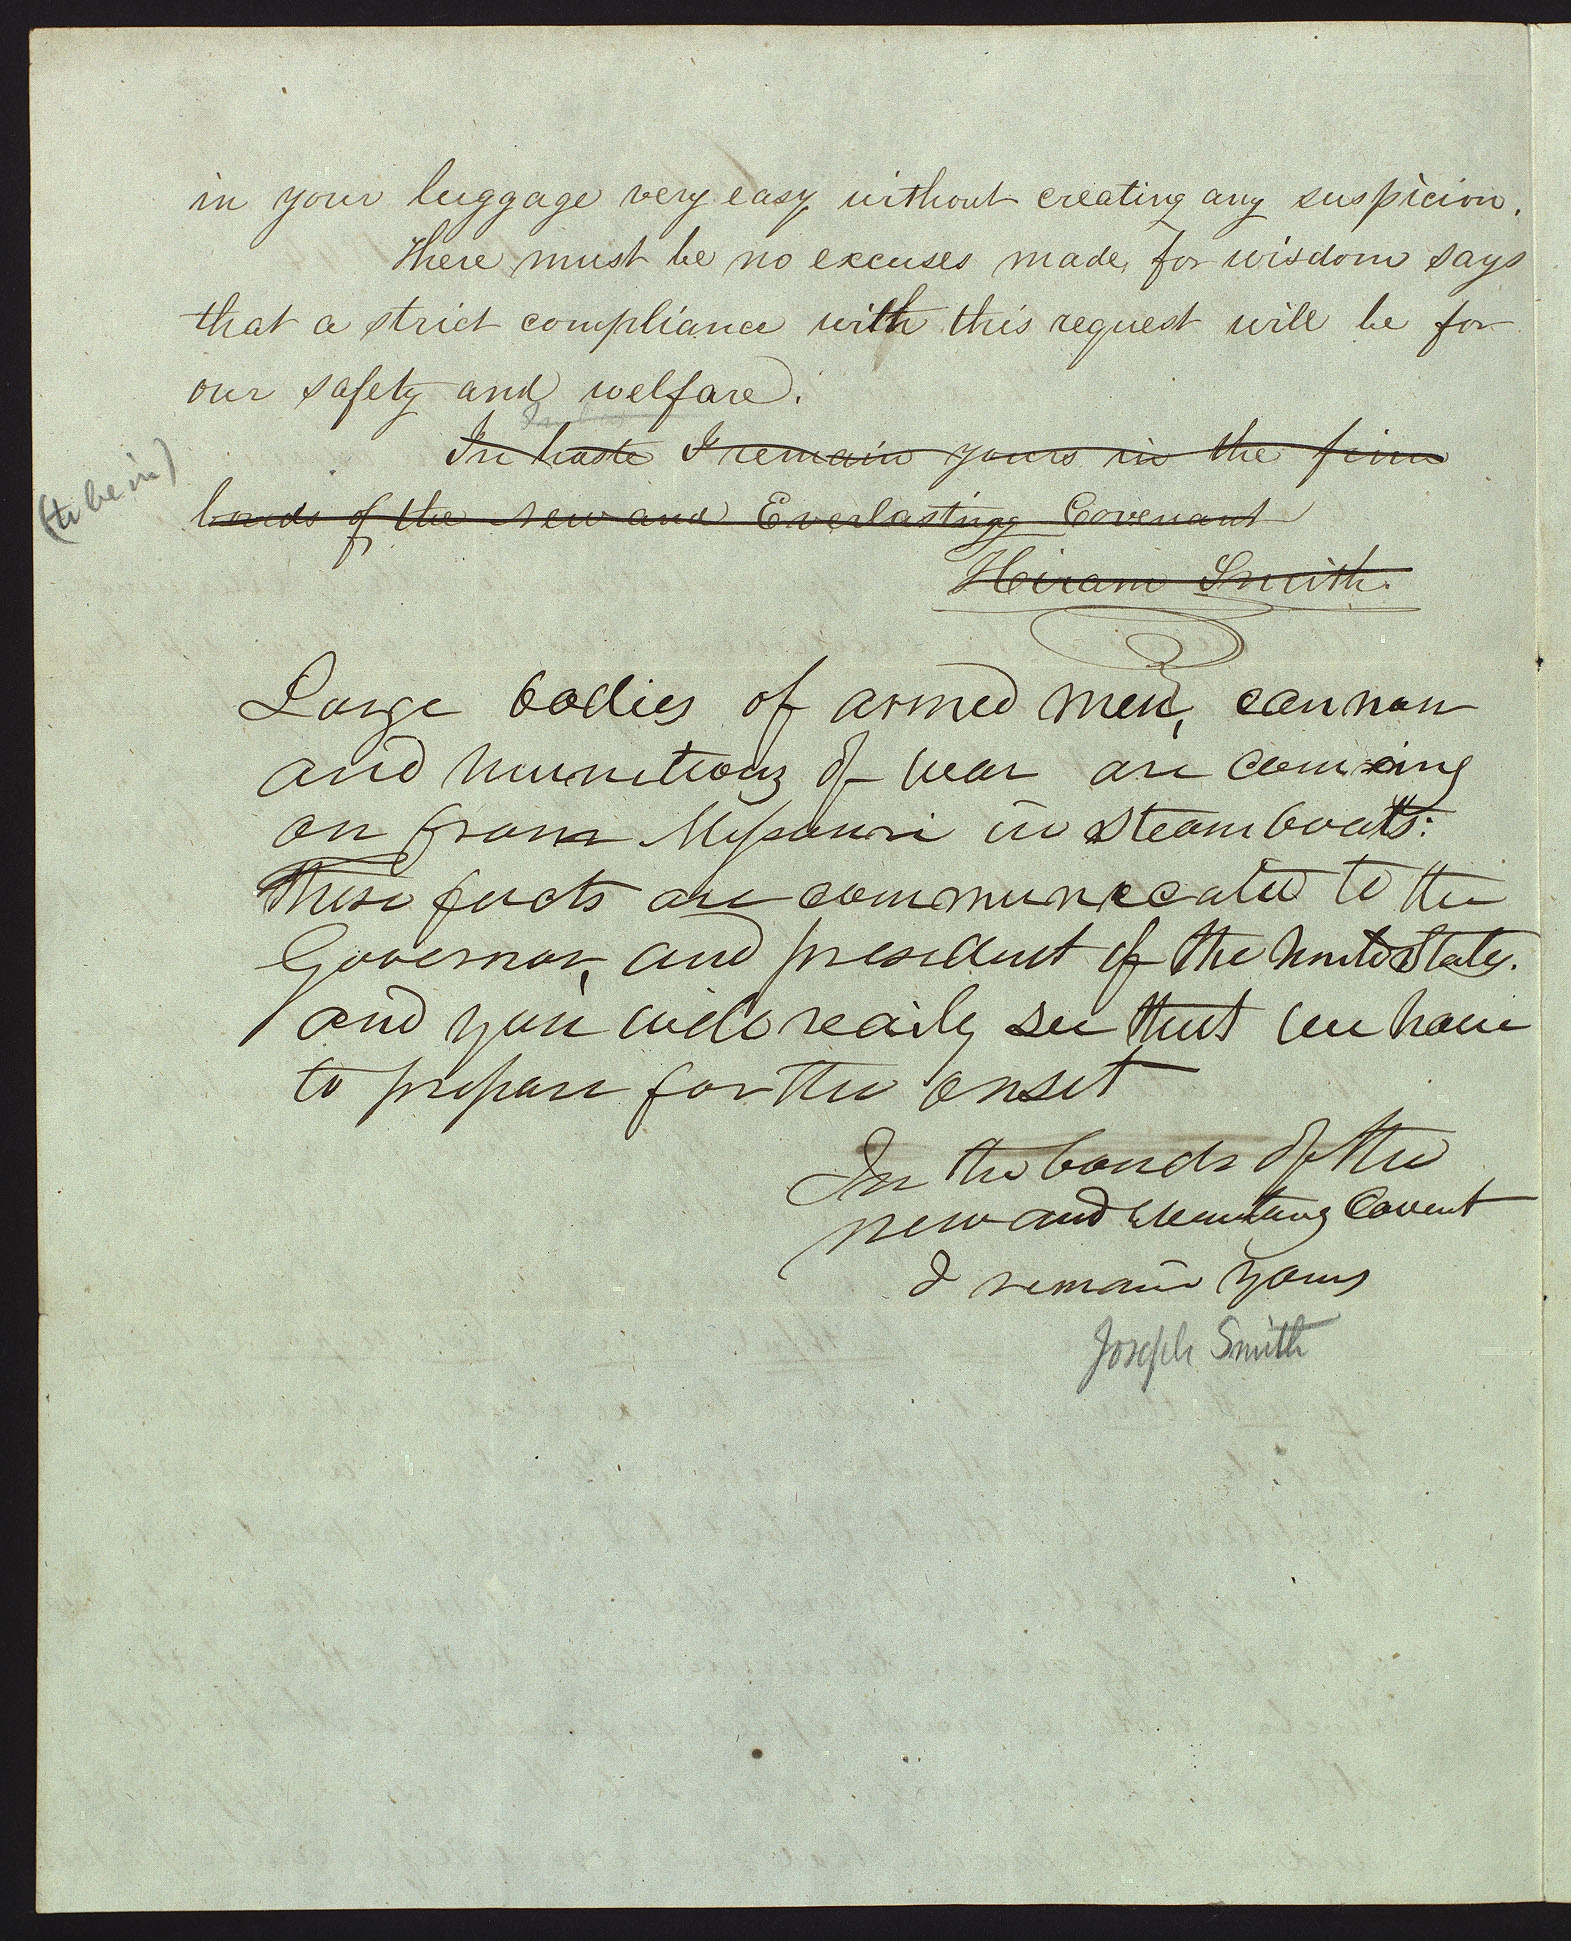 in your luggage very easy without creating any suspicion.
There must be no excuses made, for wisdom says
that a strict compliance with this request will be for
our safety and welfare.
In haste I remain yours in the firm
(to be in)
bonds of the new and Everlasting Covenant
Hiram Smith.
Large bodies of armed men, cannon
and munitions of war are comeing
on from Missouri in steamboats:
These facts are communicated to the
Governor, and president of the United States.
and you will readily see that we have
to prepare for the onset
In the bonds of the
new and Everlasting Covent
I remain yours
Joseph Smith